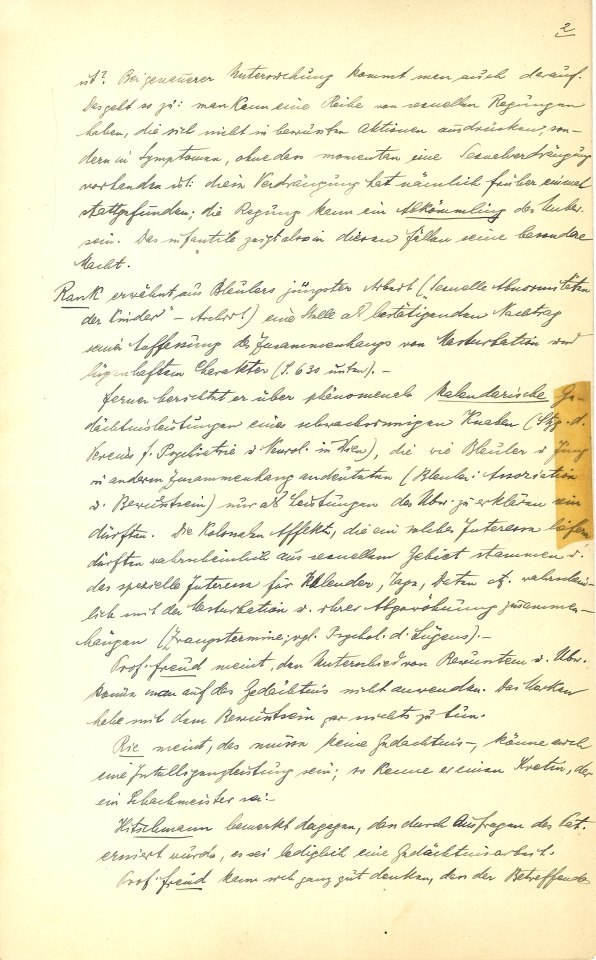 2
ist? Bei genauerer Untersuchung kommt man auch darauf.
Das geht so zu: man kann eine Reihe von sexuellen Regungen
haben, die sich nicht in bewußten Aktionen ausdrücken, son-
dern in Symptomen, ohne dass momentan eine Sexualverdrängung
vorhanden ist: die Verdrängung hat nämlich früher einmal
stattgefunden; die Regung kann ein Abkömmling des Unbew.
sein. Das infantile zeigt also in diesen Fällen seine besondere
Macht.
Rank erwähnt aus Bleulers jüngster Arbeit ("Sexuelle Abnormitäten
der Kinder" – ) eine Stelle als bestätigenden Nachtrag
seiner Auffassung des Zusammenhangs von Masturbation und
lügenhaftem Charakter (S. 630 unten). –
Ferner berichtet er über phänomenale kalendarische Ge-
dächtnisleistungen eines schwachsinnigen Knaben (Sitzg. d.
Vereins f. Psychiatrie u Neurol. in Wien), die wie Bleuler u Jung
in anderem Zusammenhang andeuteten (Bleuler: Assoziation
u. Bewußtsein) nur als Leistungen des Ubw. zu erklären sein
dürften. Die Affekte, die ein solches Interesse liefern
dürften wahrscheinlich aus sexuellem Gebiet stammen u.
das spezielle Interesse für Kalender, Tage, Daten etz. wahrschein-
lich mit der Masturbation u. ihrer Abgewöhnung zusammen-
hängen (Zwangstermine; vgl. Psychol. d. Lügens). –
Prof. Freud meint, den Unterschied von Bewußtem u. Ubw.
könne man auf das Gedächtnis nicht anwenden. Das Merken
habe mit dem Bewußtsein gar nichts zu tun.
Rie meint, das müsse keine Gedächtnis–, könne auch
eine Intelligenzleistung sein; so kenne er einen Kretin, der
ein Schachmeister sei. –
Hitschmann bemerkt dagegen, dass durch Ausfragen des Pat.
eruiert wurde, es sei lediglich eine Gedächtnisarbeit.
Prof. Freud kann sich ganz gut denken, dass der Betreffende